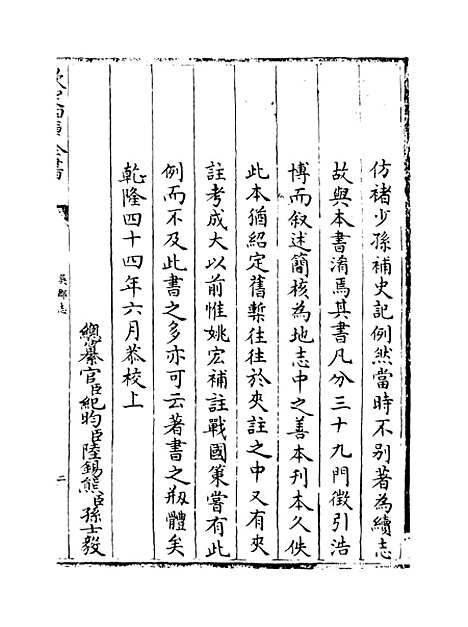 仿褚少孫補史記例然當時不别著為續志
故與本書淆焉其書凡分三十九門徵引浩
博而叙述簡核為地志中之善本刋本久佚
此本猶紹定舊槧往往於夾註之中又有夾
註考成大以前惟姚宏補註戰國策嘗有此
例而不及此書之多亦可云著書之剏體矣
乾隆四十四年六月恭校上
總纂官臣紀昀臣陸錫熊臣孫士毅
欽定四庫全書
吳郡志
二